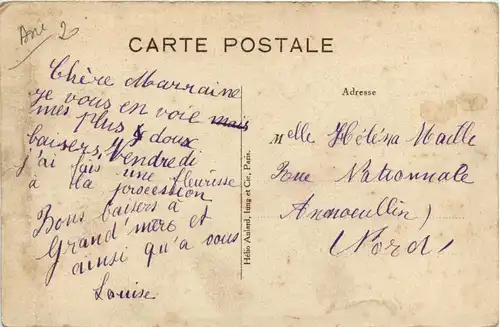 Ani 2
CARTE POSTALE
Chère Marraine
je vous en voie mais
mes plus doux
baisers, Vendredi
j'ai fais une fleurisse
à la procession
Bons baisers à
Grand'mère et
ainsi qu'à vous
Louise
Hélio Aulard, Iung et Cie, Paris.
Adresse
Melle Hélèna Maille
Rue Nationnale
Annoeullin
Nord